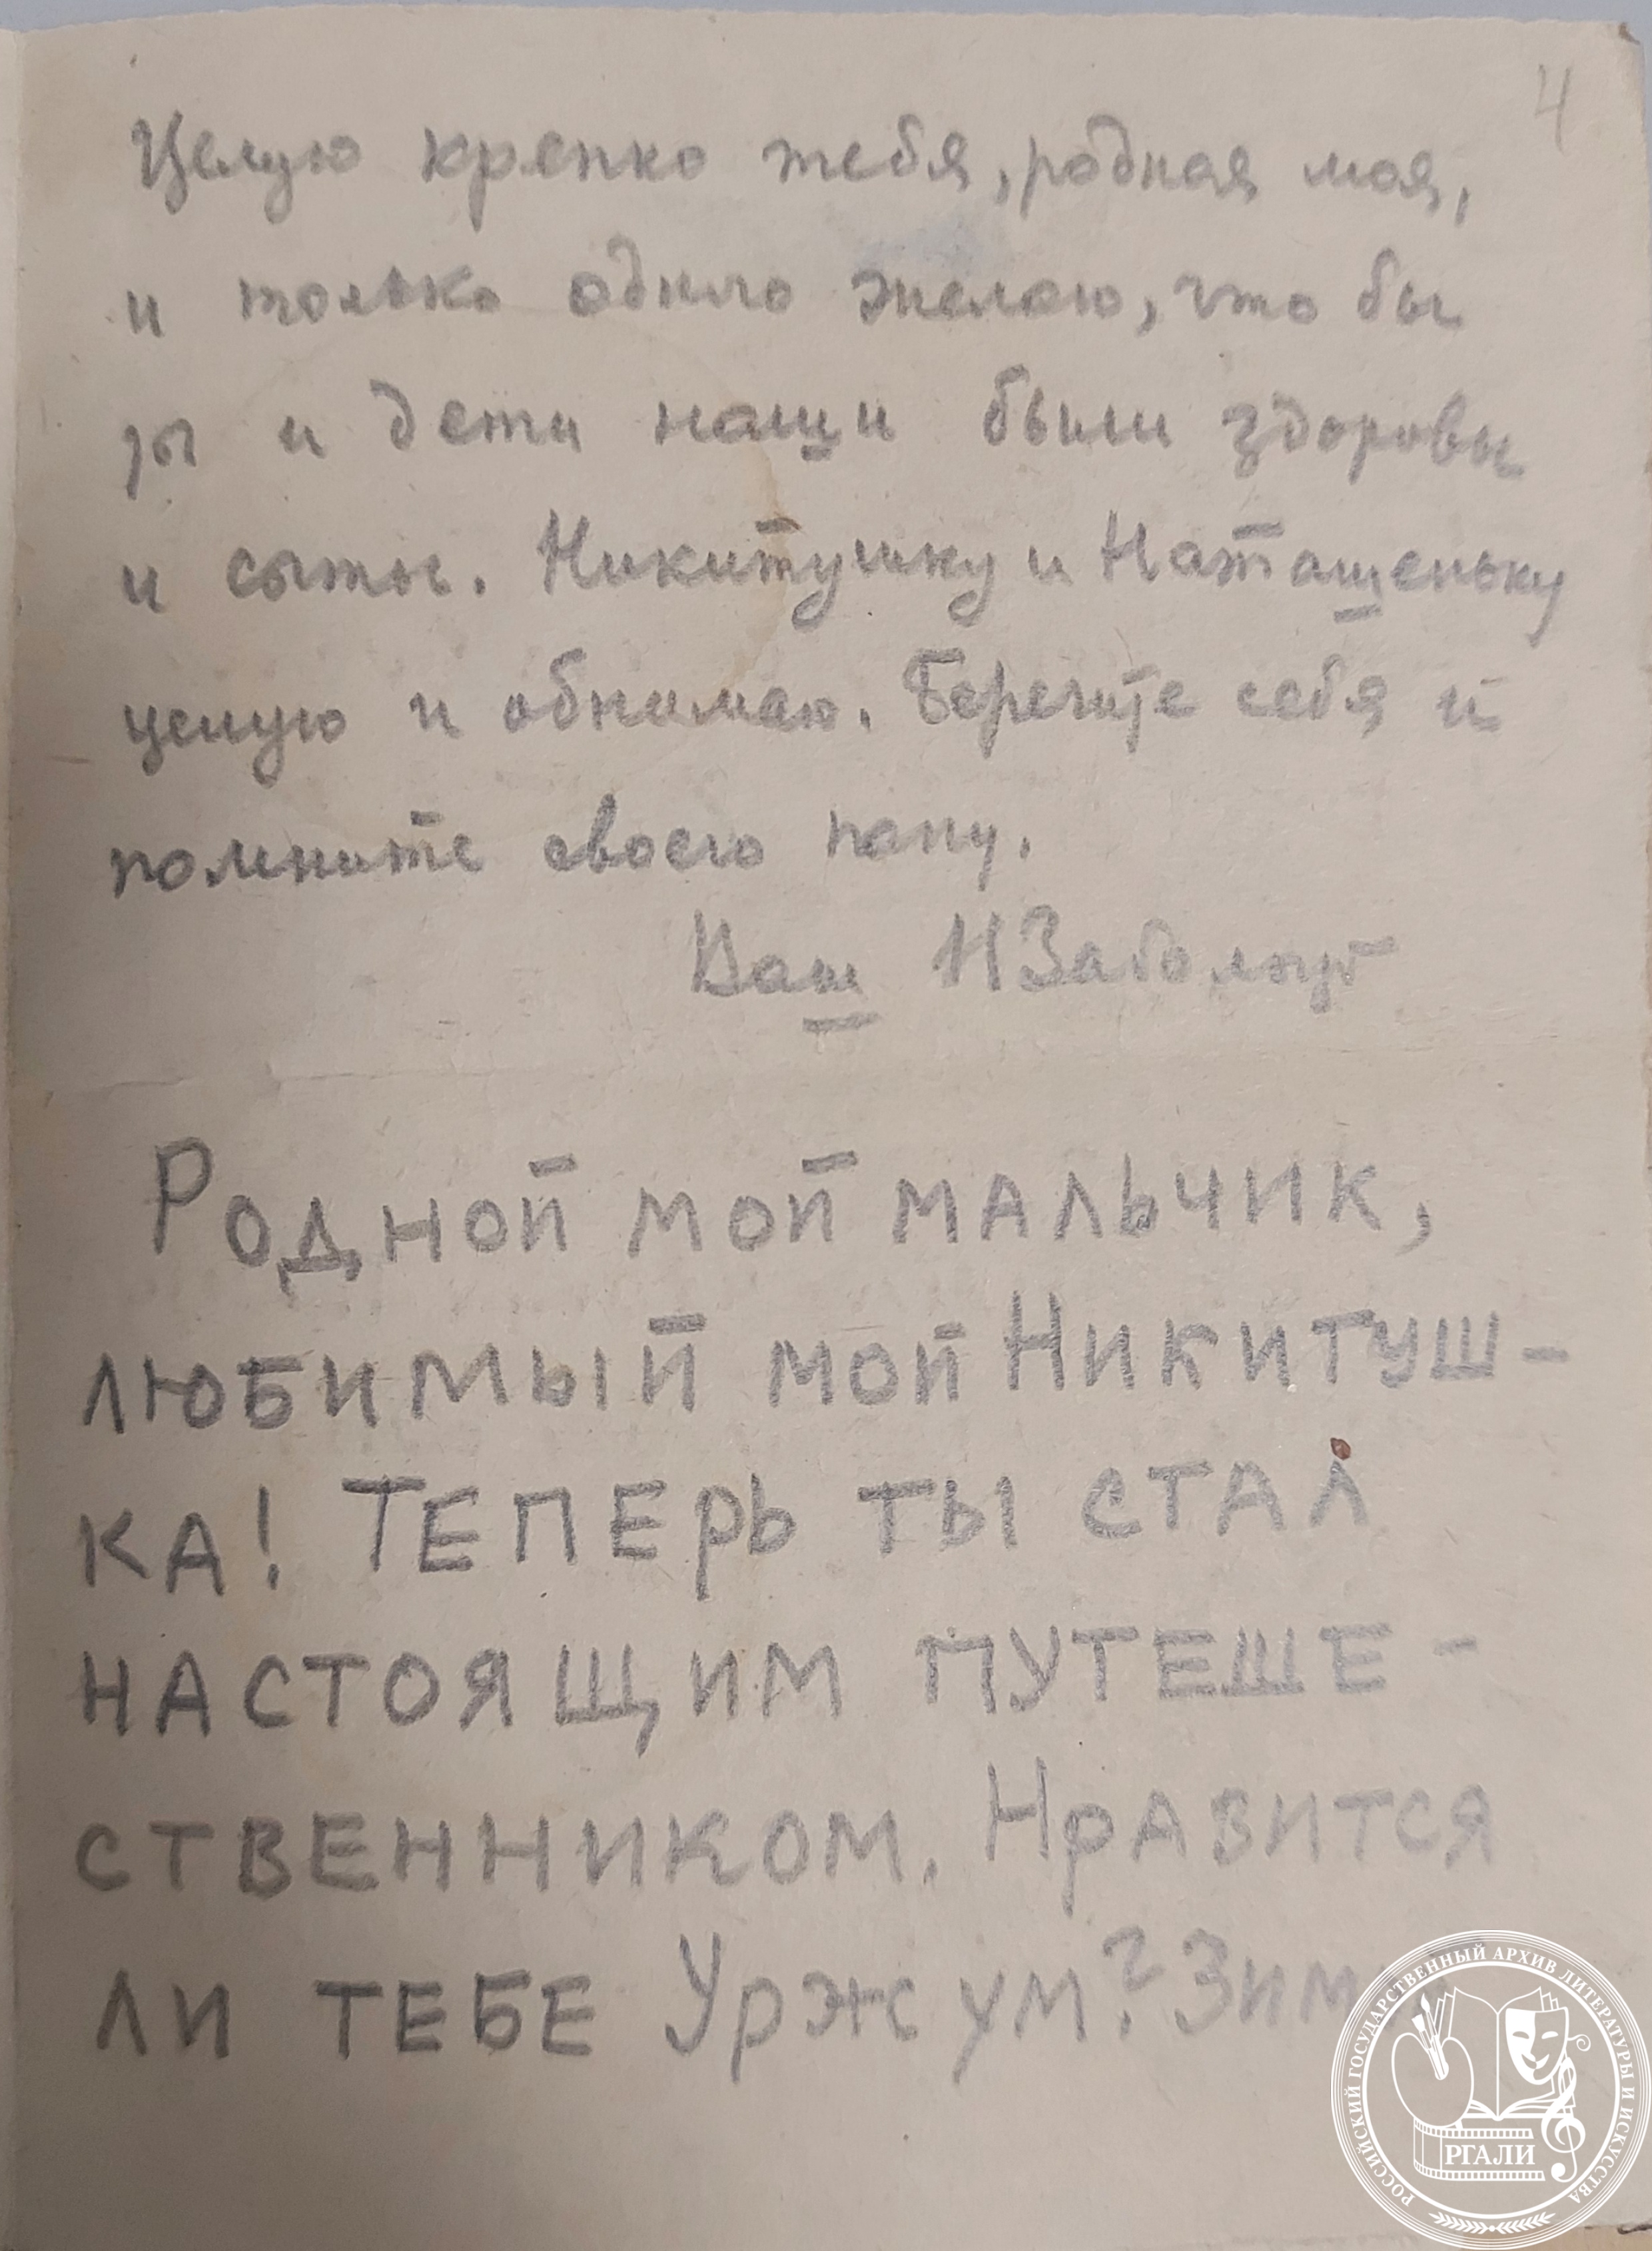 4
Целую крепко тебя, родная моя,
и только одного желаю, что бы
ты и дети наши были здоровы
и сыты. Никитушку и Наташеньку
целую и обнимаю. Берегите себя и
помните своего папу.
Ваш Н Заболоцк
Родной мой мальчик,
любимый мой Никитуш-
ка! Теперь ты стал
настоящим путеше-
ственником. Нравится
ли тебе Уржум? Зимой
РОССИЙСКИЙ ГОСУДАРСТВЕННЫЙ АРХИВ ЛИТЕРАТУРЫ И ИСКУССТВА
РГАЛИ